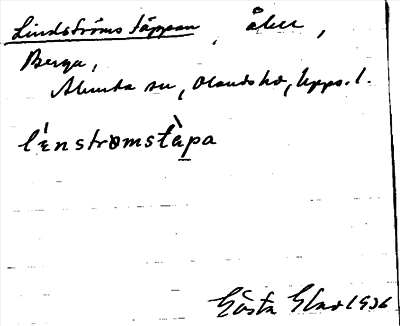 Lindströms täppan, åker,
Berga,
Alunda sn, Olands hd, Upps. l.
lì̀nstrømstàpa
Gösta Elmer 1936